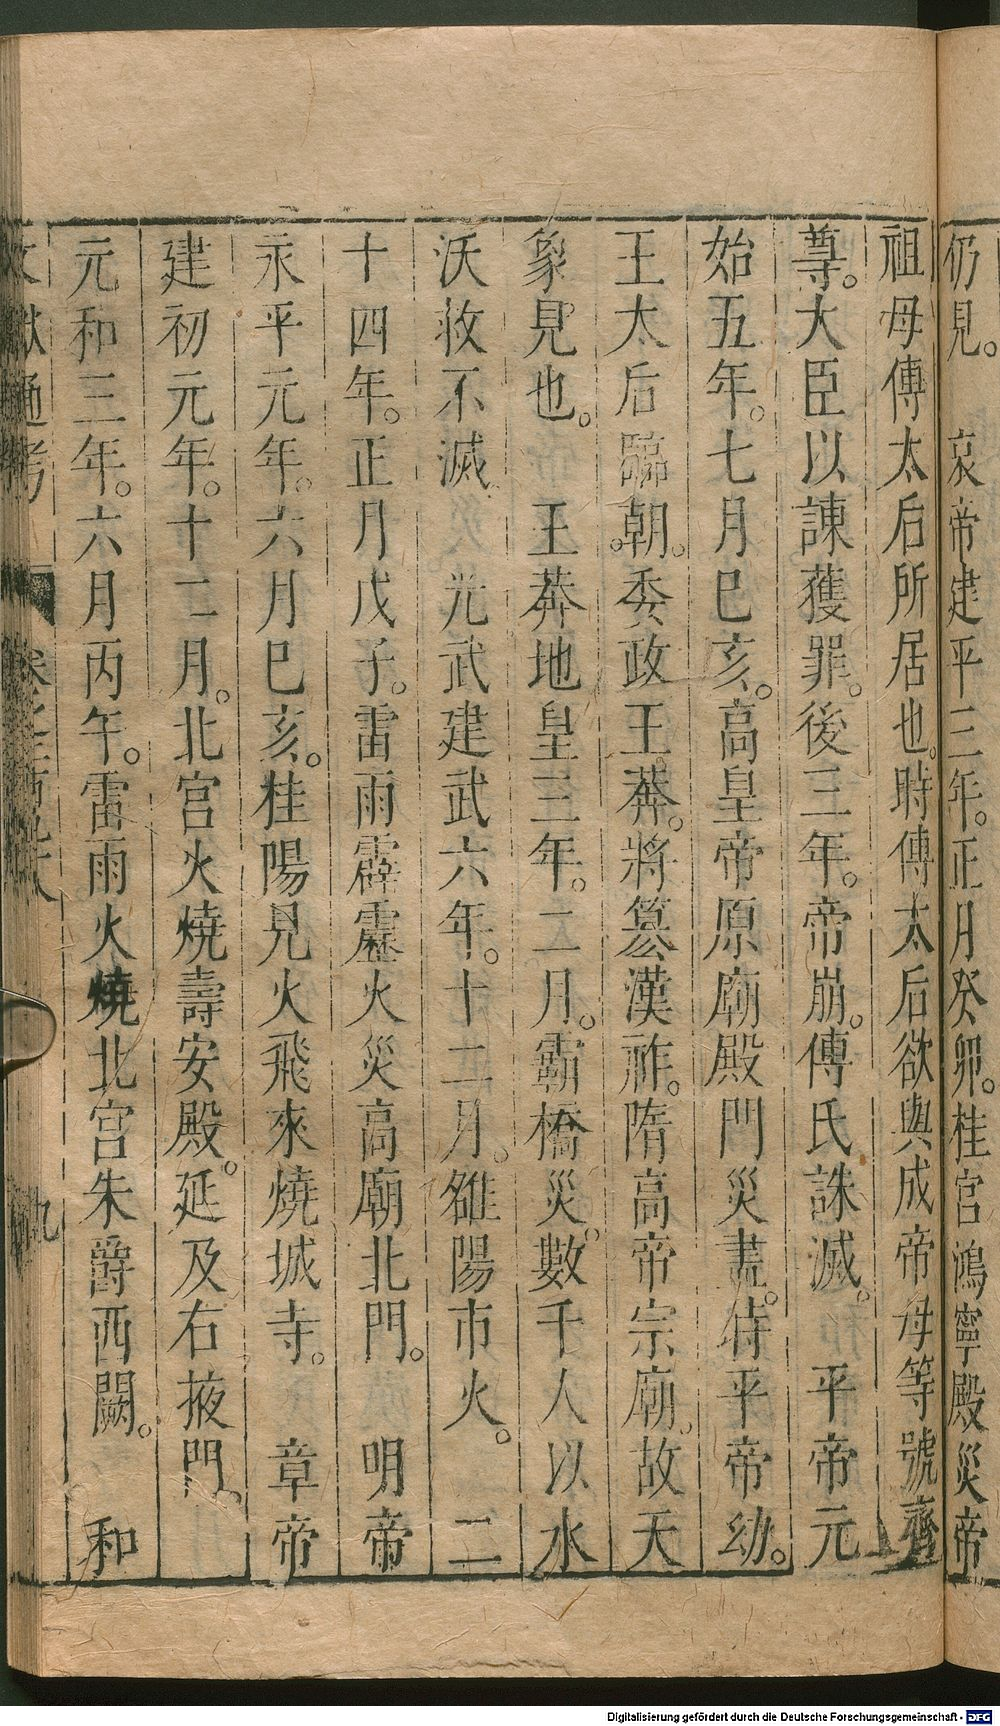 仍見。　哀帝建平三年。正月癸卯。桂宮鴻寧殿災帝
祖母傅太后所居也。時傅太后欲與成帝母等號齊
尊。大臣以諫獲罪。後三年。帝崩。傅氏誅滅。　平帝元
始五年。七月巳亥。高皇帝原廟殿門災盡。時平帝幼。
王太后臨朝。委政王莽。將篡漢祚。隋高帝宗廟。故天
象見也。　王莽地皇三年。二月。霸橋災。數千人以水
沃救不滅　光武建武六年。十二月。雒陽市火。　二
十四年。正月戊子。雷雨霹靂火災高廟北門。　明帝
永平元年。六月巳亥。桂陽見火飛來燒城寺。　章帝
建初元年。十二月。北宮火燒壽安殿。延及右掖門。
元和三年。六月丙午。雷雨火燒北宮朱爵西闕。　和
文獻通考　卷之二百九十八　九
Digitalisierung gefördert durch die Deutsche Forschungsgemeinschaft - DFG